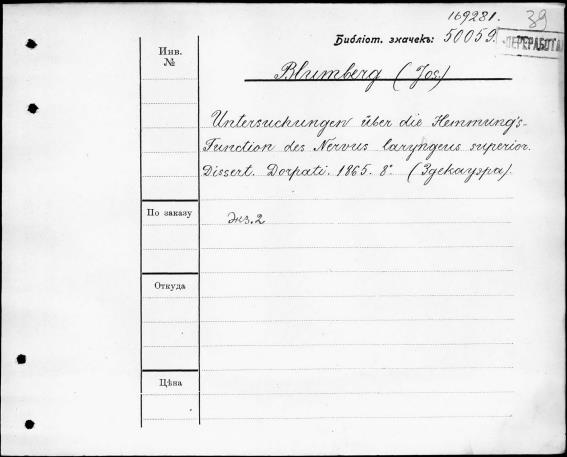 169281.
39
Библіот. значекъ: 50059.
ПЕРЕРАБОТАН
Инв.
№
Blumberg (Jos)
Untersuchungen über die Hemmung's-
Function des Nervus laryngeus superior.
Dissert. Dorpati. 1865. 8°. (Здекауэра).
По заказу
Экз. 2
Откуда
Цѣна